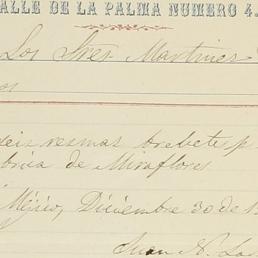 ALLE DE LA PALMA NUMERO 4.
Los Sres Martines
os
eis resmas brebete p
brica de Miraflores
Méjico, Diciembre 30 de 1
Juan N. Las